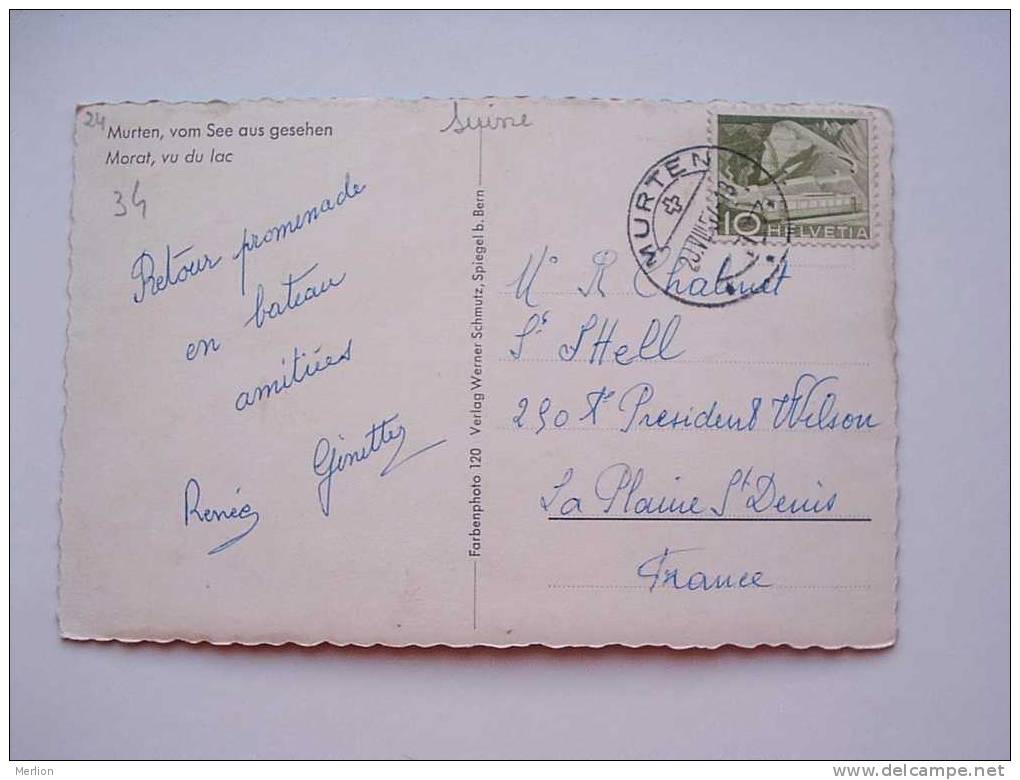 24
Murten, vom See aus gesehen
Morat, vu du lac
34
Suisse
Retour promenade
en bateau
amitiées
Ginette
Renée
Farbenphoto 120 Verlag Werner Schmutz, Spiegel b. Bern
MURTEN
20.VIII.
10 HELVETIA
Mr R Chalumet
Sté SHell
290 Av President Wilson
La Plaine St Denis
France
Merlion
delcampe.net